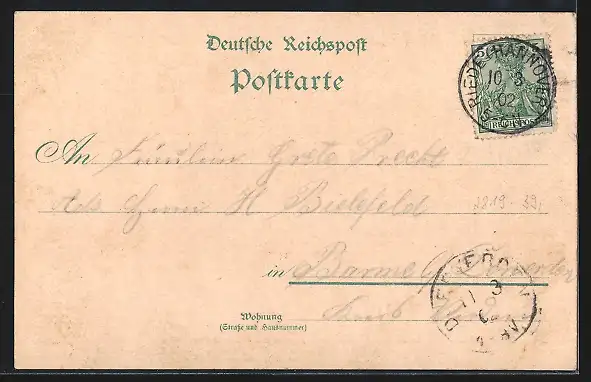 Deutsche Reichspost
Postkarte
RIEDE (HANNOVER)
10 3
02
REICHSPOST
An Fräulein Grete Precht
Ads Herrn H Bielefeld
2819 - 39,
in Barme b/
DÖRVERDEN
11 3
Kreis
Wohnung
(Straße und Hausnummer)